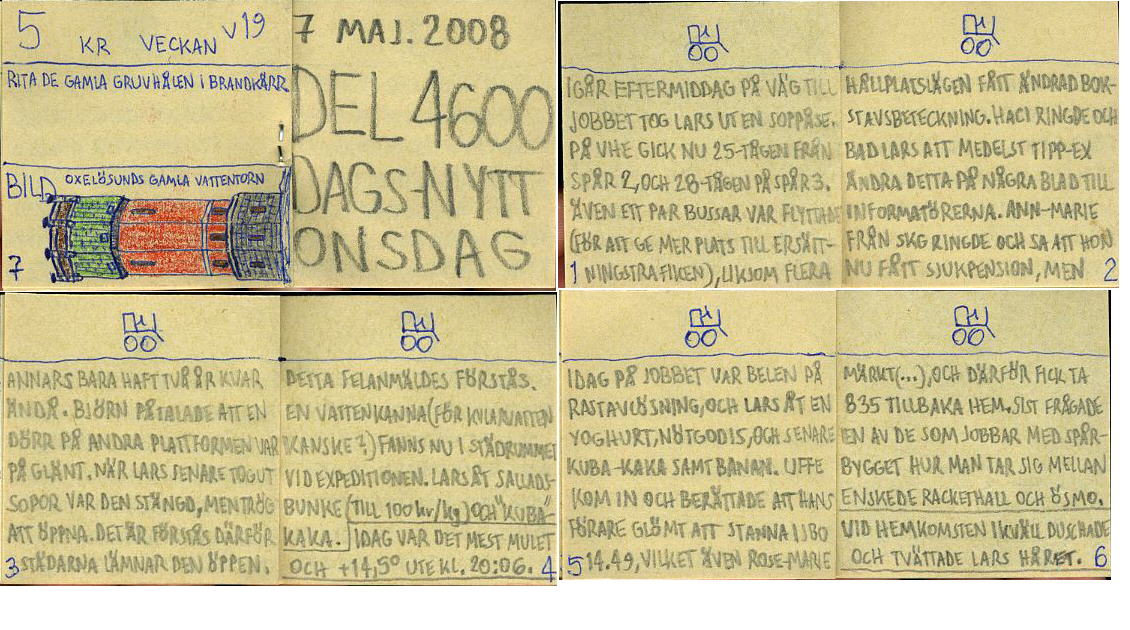 5 KR VECKAN V19
RITA DE GAMLA GRUVHÅLEN I BRANDKÄRR
BILD OXELÖSUNDS GAMLA VATTENTORN
7
7 MAJ. 2008
DEL 4600
DAGS-NYTT
ONSDAG
IGÅR EFTERMIDDAG PÅ VÄG TILL
JOBBET TOG LARS UT EN SOPPÅSE.
PÅ VHE GICK NU 25-TÅGEN FRÅN
SPÅR 2, OCH 28-TÅGEN PÅ SPÅR 3.
ÄVEN ETT PAR BUSSAR VAR FLYTTADE
(FÖR ATT GE MER PLATS TILL ERSÄTT-
1 NINGSTRAFIKEN), LIKSOM FLERA
HÅLLPLATSLÄGEN FÅTT ÄNDRAD BOK-
STAVSBETECKNING. HACI RINGDE OCH
BAD LARS ATT MEDELST TIPP-EX
ÄNDRA DETTA PÅ NÅGRA BLAD TILL
INFORMATÖRERNA. ANN-MARIE
FRÅN SKG RINGDE OCH SA ATT HON
NU FÅTT SJUKPENSION, MEN 2
ANNARS BARA HAFT TVÅ ÅR KVAR
ÄNDÅ. BJÖRN PÅTALADE ATT EN
DÖRR PÅ ANDRA PLATTFORMEN VAR
PÅ GLÄNT. NÄR LARS SENARE TOG UT
SOPOR VAR DEN STÄNGD, MEN TRÖG
ATT ÖPPNA. DET ÄR FÖRSTÅS DÄRFÖR
3 STÄDARNA LÄMNAR DEN ÖPPEN.
DETTA FELANMÄLDES FÖRSTÅS.
EN VATTENKANNA (FÖR KVLARVATTEN
KANSKE?) FANNS NU I STÄDRUMMET
VID EXPEDITIONEN. LARS ÅT SALLADS-
BUNKE (TILL 100 kr/kg) OCH "KUBA-
KAKA." IDAG VAR DET MEST MULET
OCH +14,5° UTE KL. 20:06. 4
IDAG PÅ JOBBET VAR BELEN PÅ
RASTAVLÖSNING, OCH LARS ÅT EN
YOGHURT, NÖTGODIS, OCH SENARE
KUBA-KAKA SAMT BANAN. UFFE
KOM IN OCH BERÄTTADE ATT HANS
FÖRARE GLÖMT ATT STANNA I SBO
5 14.49, VILKET ÄVEN ROSE-MARIE
MÄRKT (...), OCH DÄRFÖR FICK TA
835 TILLBAKA HEM. SIST FRÅGADE
EN AV DE SOM JOBBAR MED SPÅR-
BYGGET HUR MAN TAR SIG MELLAN
ENSKEDE RACKETHALL OCH ÖSMO.
VID HEMKOMSTEN IKVÄLL DUSCHADE
OCH TVÄTTADE LARS HÅRET. 6